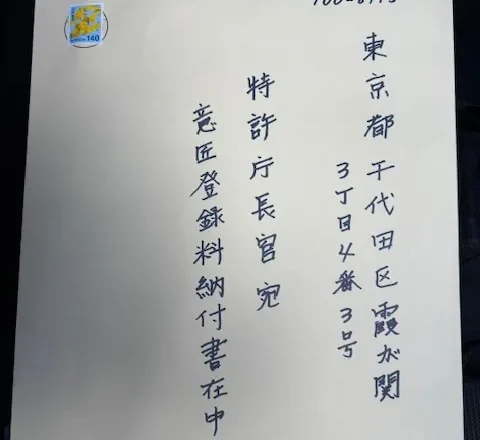 東京都千代田区霞が関
3丁目4番3号
特許庁長官宛
意匠登録料納付書在中
140